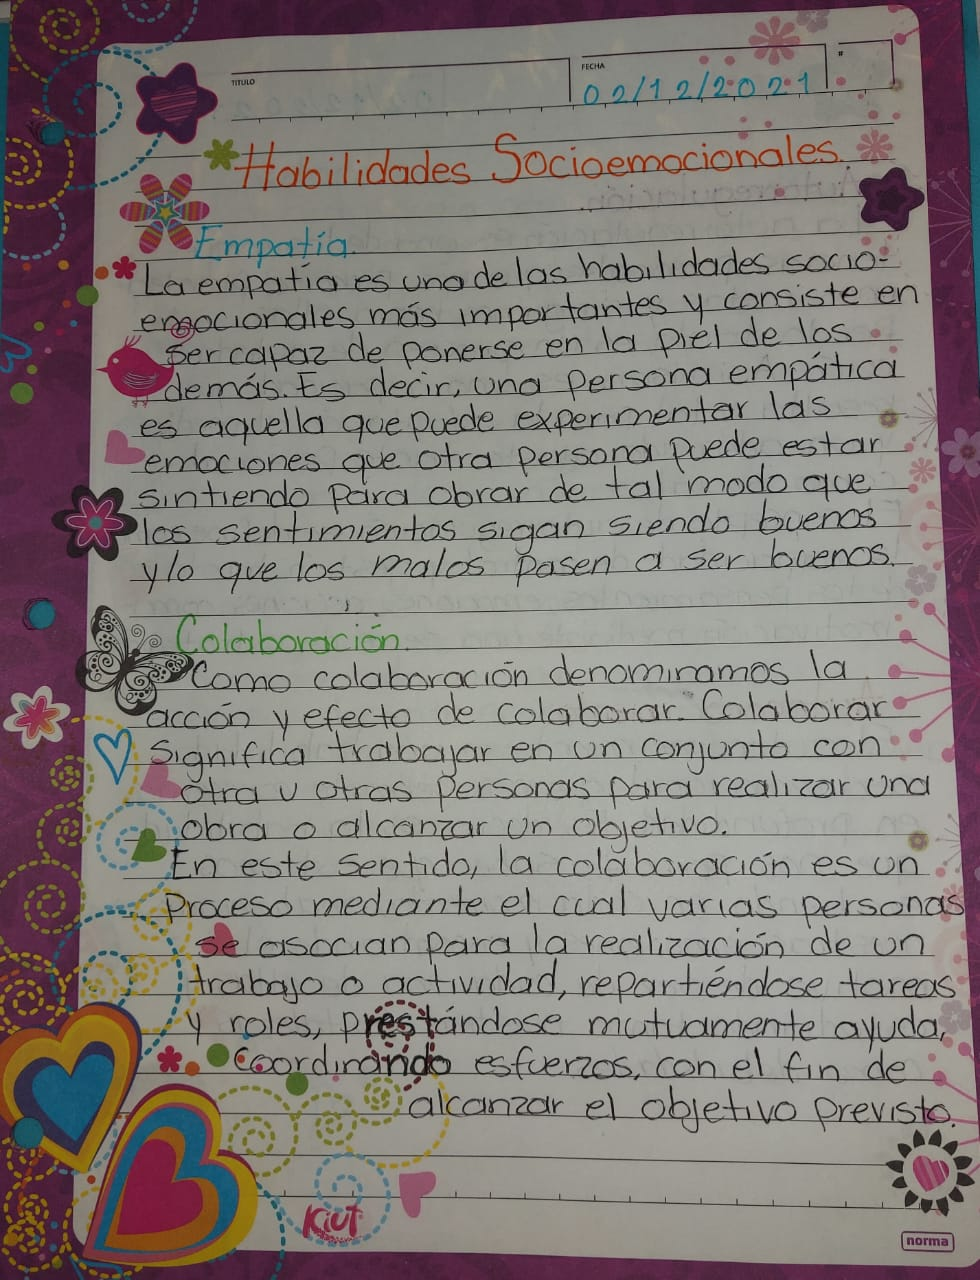 TITULO
FECHA
#
02/12/2021
Habilidades Socioemocionales.
Empatía.
La empatía es una de las habilidades socio-
emocionales más importantes y consiste en
ser capaz de ponerse en la piel de los
demás. Es decir, una persona empática
es aquella que puede experimentar las
emociones que otra persona puede estar
sintiendo para obrar de tal modo que
los sentimientos sigan siendo buenos
y/o que los malos pasen a ser buenos.
Colaboración.
Como colaboración denominamos la
acción y efecto de colaborar. Colaborar
significa trabajar en un conjunto con
otra u otras personas para realizar una
obra o alcanzar un objetivo.
En este sentido, la colaboración es un
proceso mediante el cual varias personas
se asocian para la realización de un
trabajo o actividad, repartiéndose tareas
y roles, prestándose mutuamente ayuda,
coordinando esfuerzos, con el fin de
alcanzar el objetivo previsto.
KIUT
norma